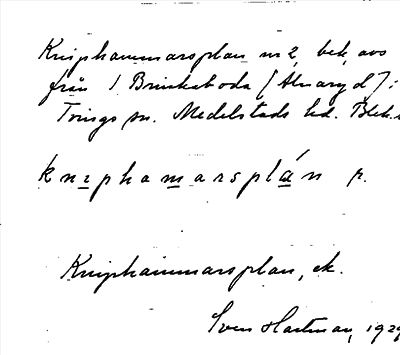 Kniphammarsplan nr 2, bek, avs
från 1 Brinkaboda [Alnaryd] i
Tvings sn. Medelstads hd. Blek.
knɪphamarsplán f.
Kniphammarsplan, ek.
Sven Hartman, 1929